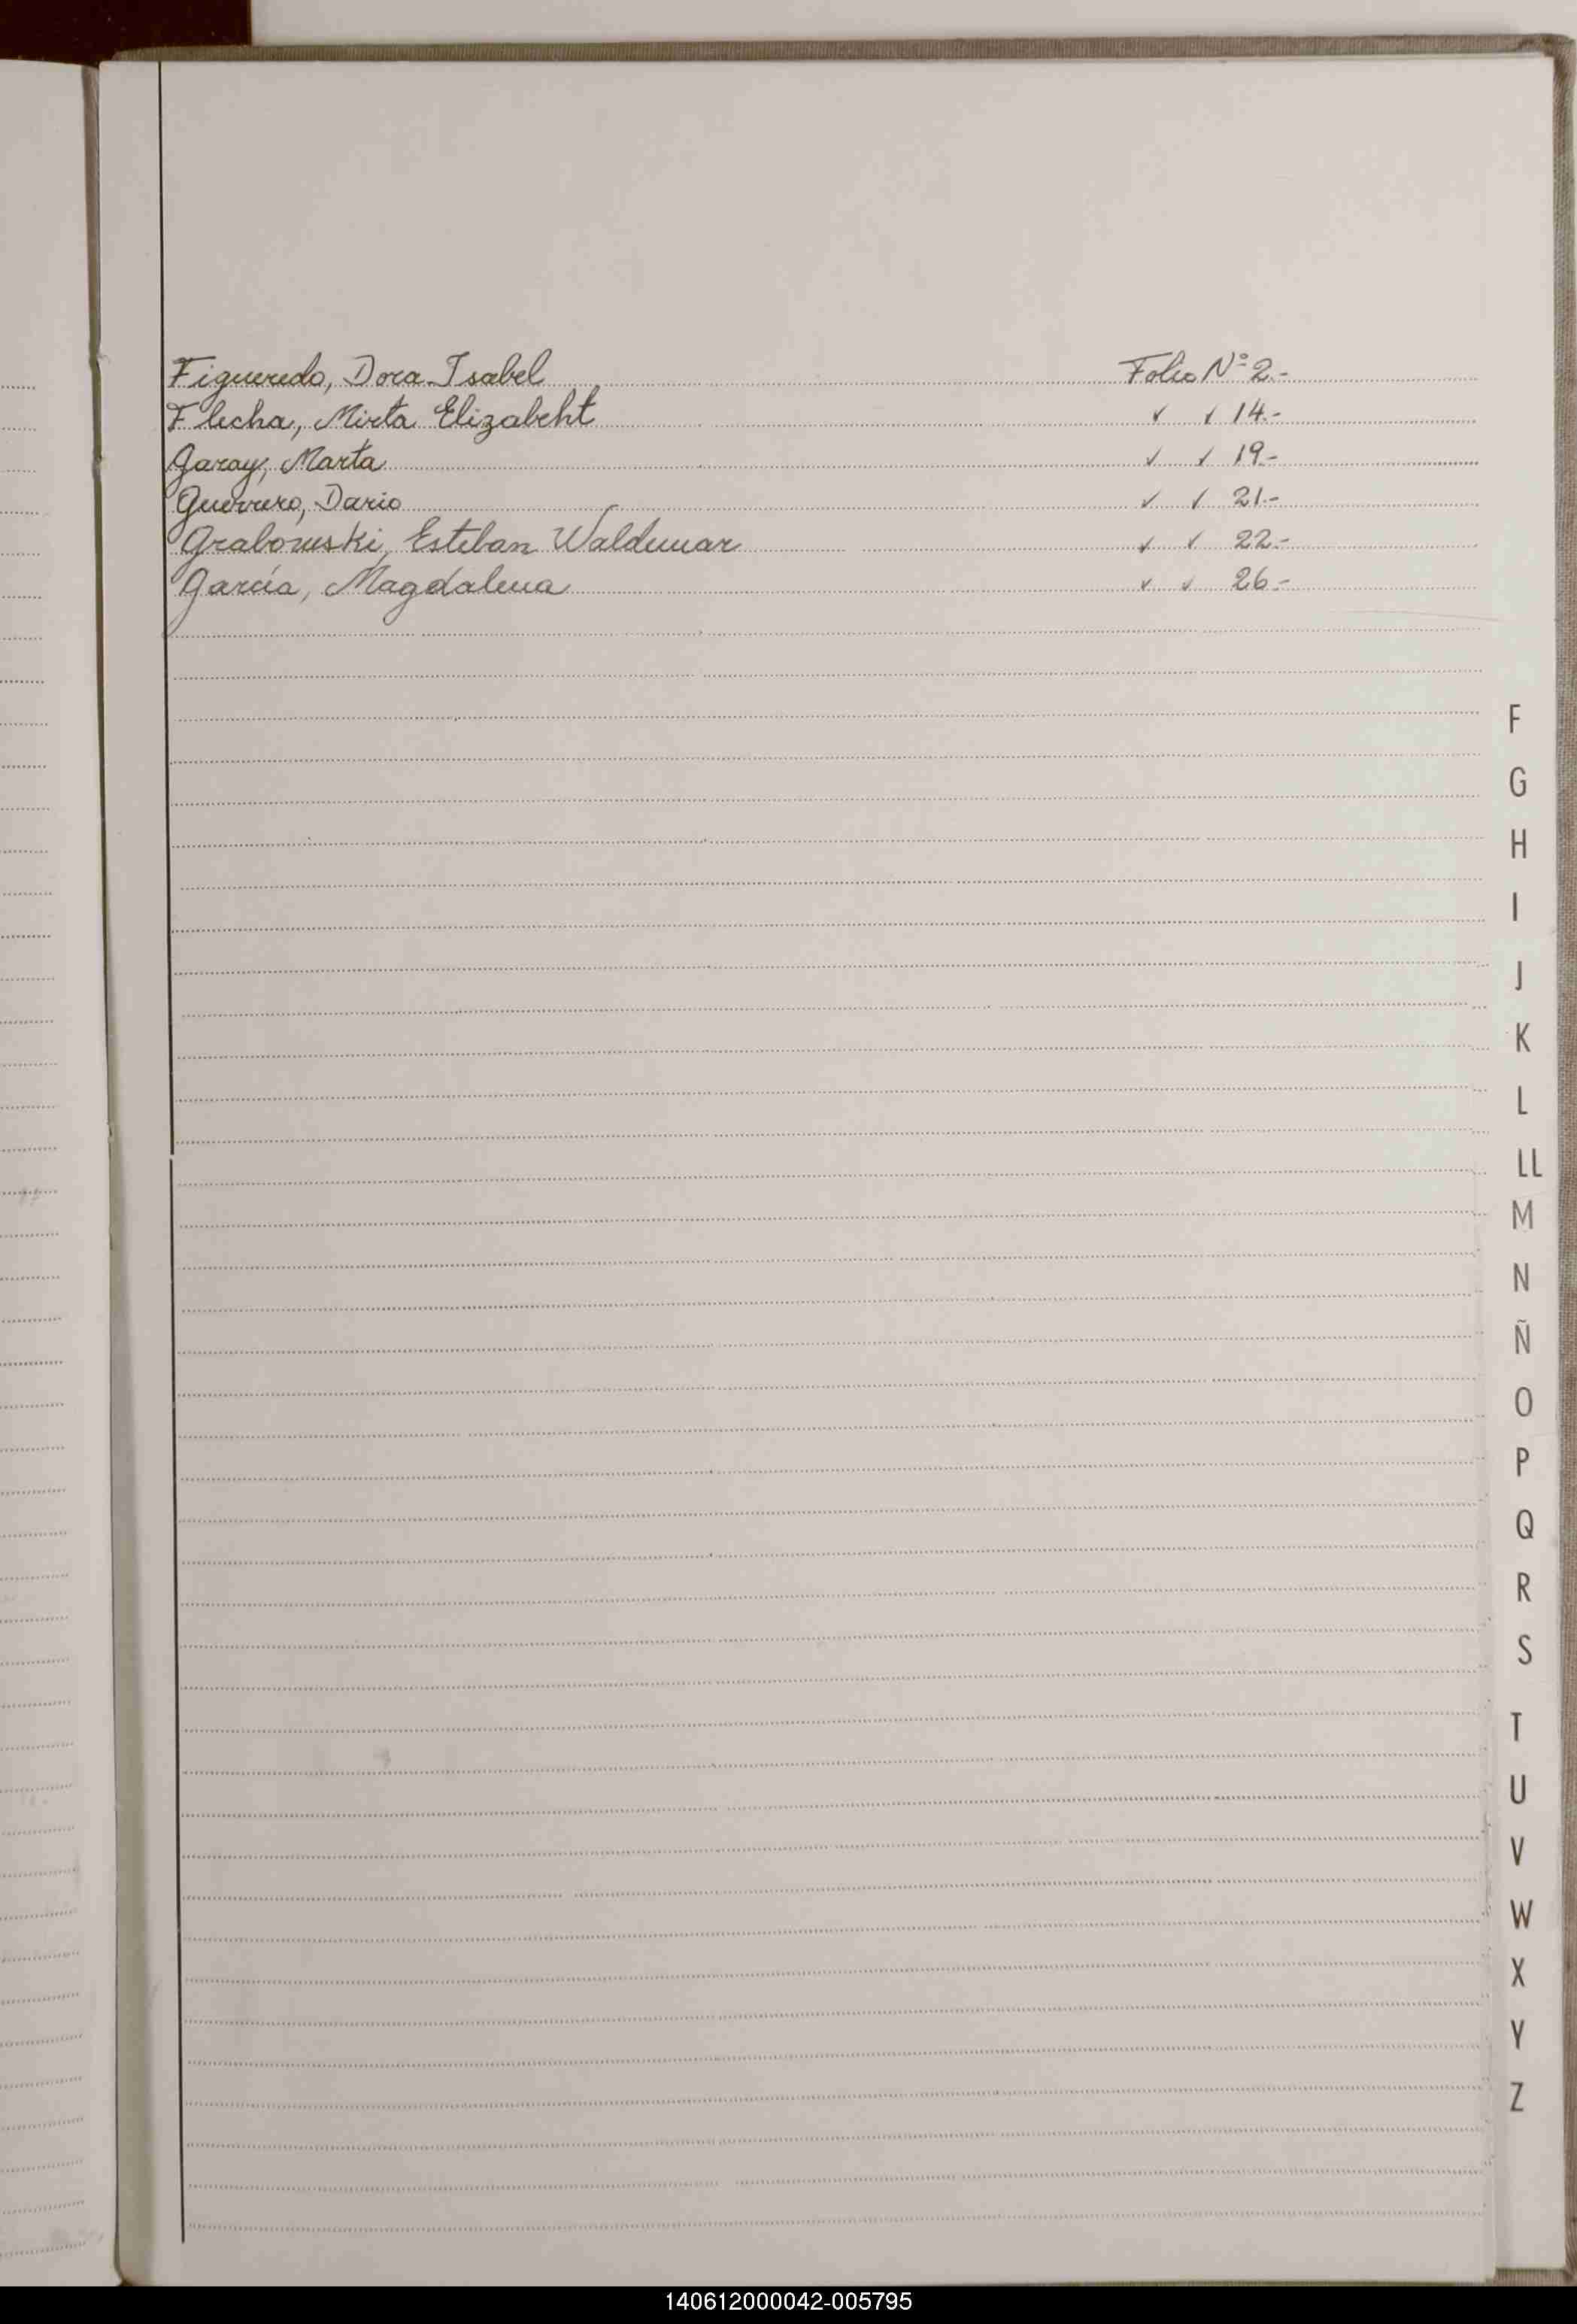 Figueredo, Dora Isabel Folio Nº 2.-
Flecha, Mirta Elizabeht ✓ ✓ 14.-
Garay, Marta ✓ ✓ 19.-
Guerrero, Dario ✓ ✓ 21.-
Grabowski, Esteban Waldemar ✓ ✓ 22.-
García, Magdalena ✓ ✓ 26.-
F
G
H
I
J
K
L
LL
M
N
Ñ
O
P
Q
R
S
T
U
V
W
X
Y
Z
140612000042-005795